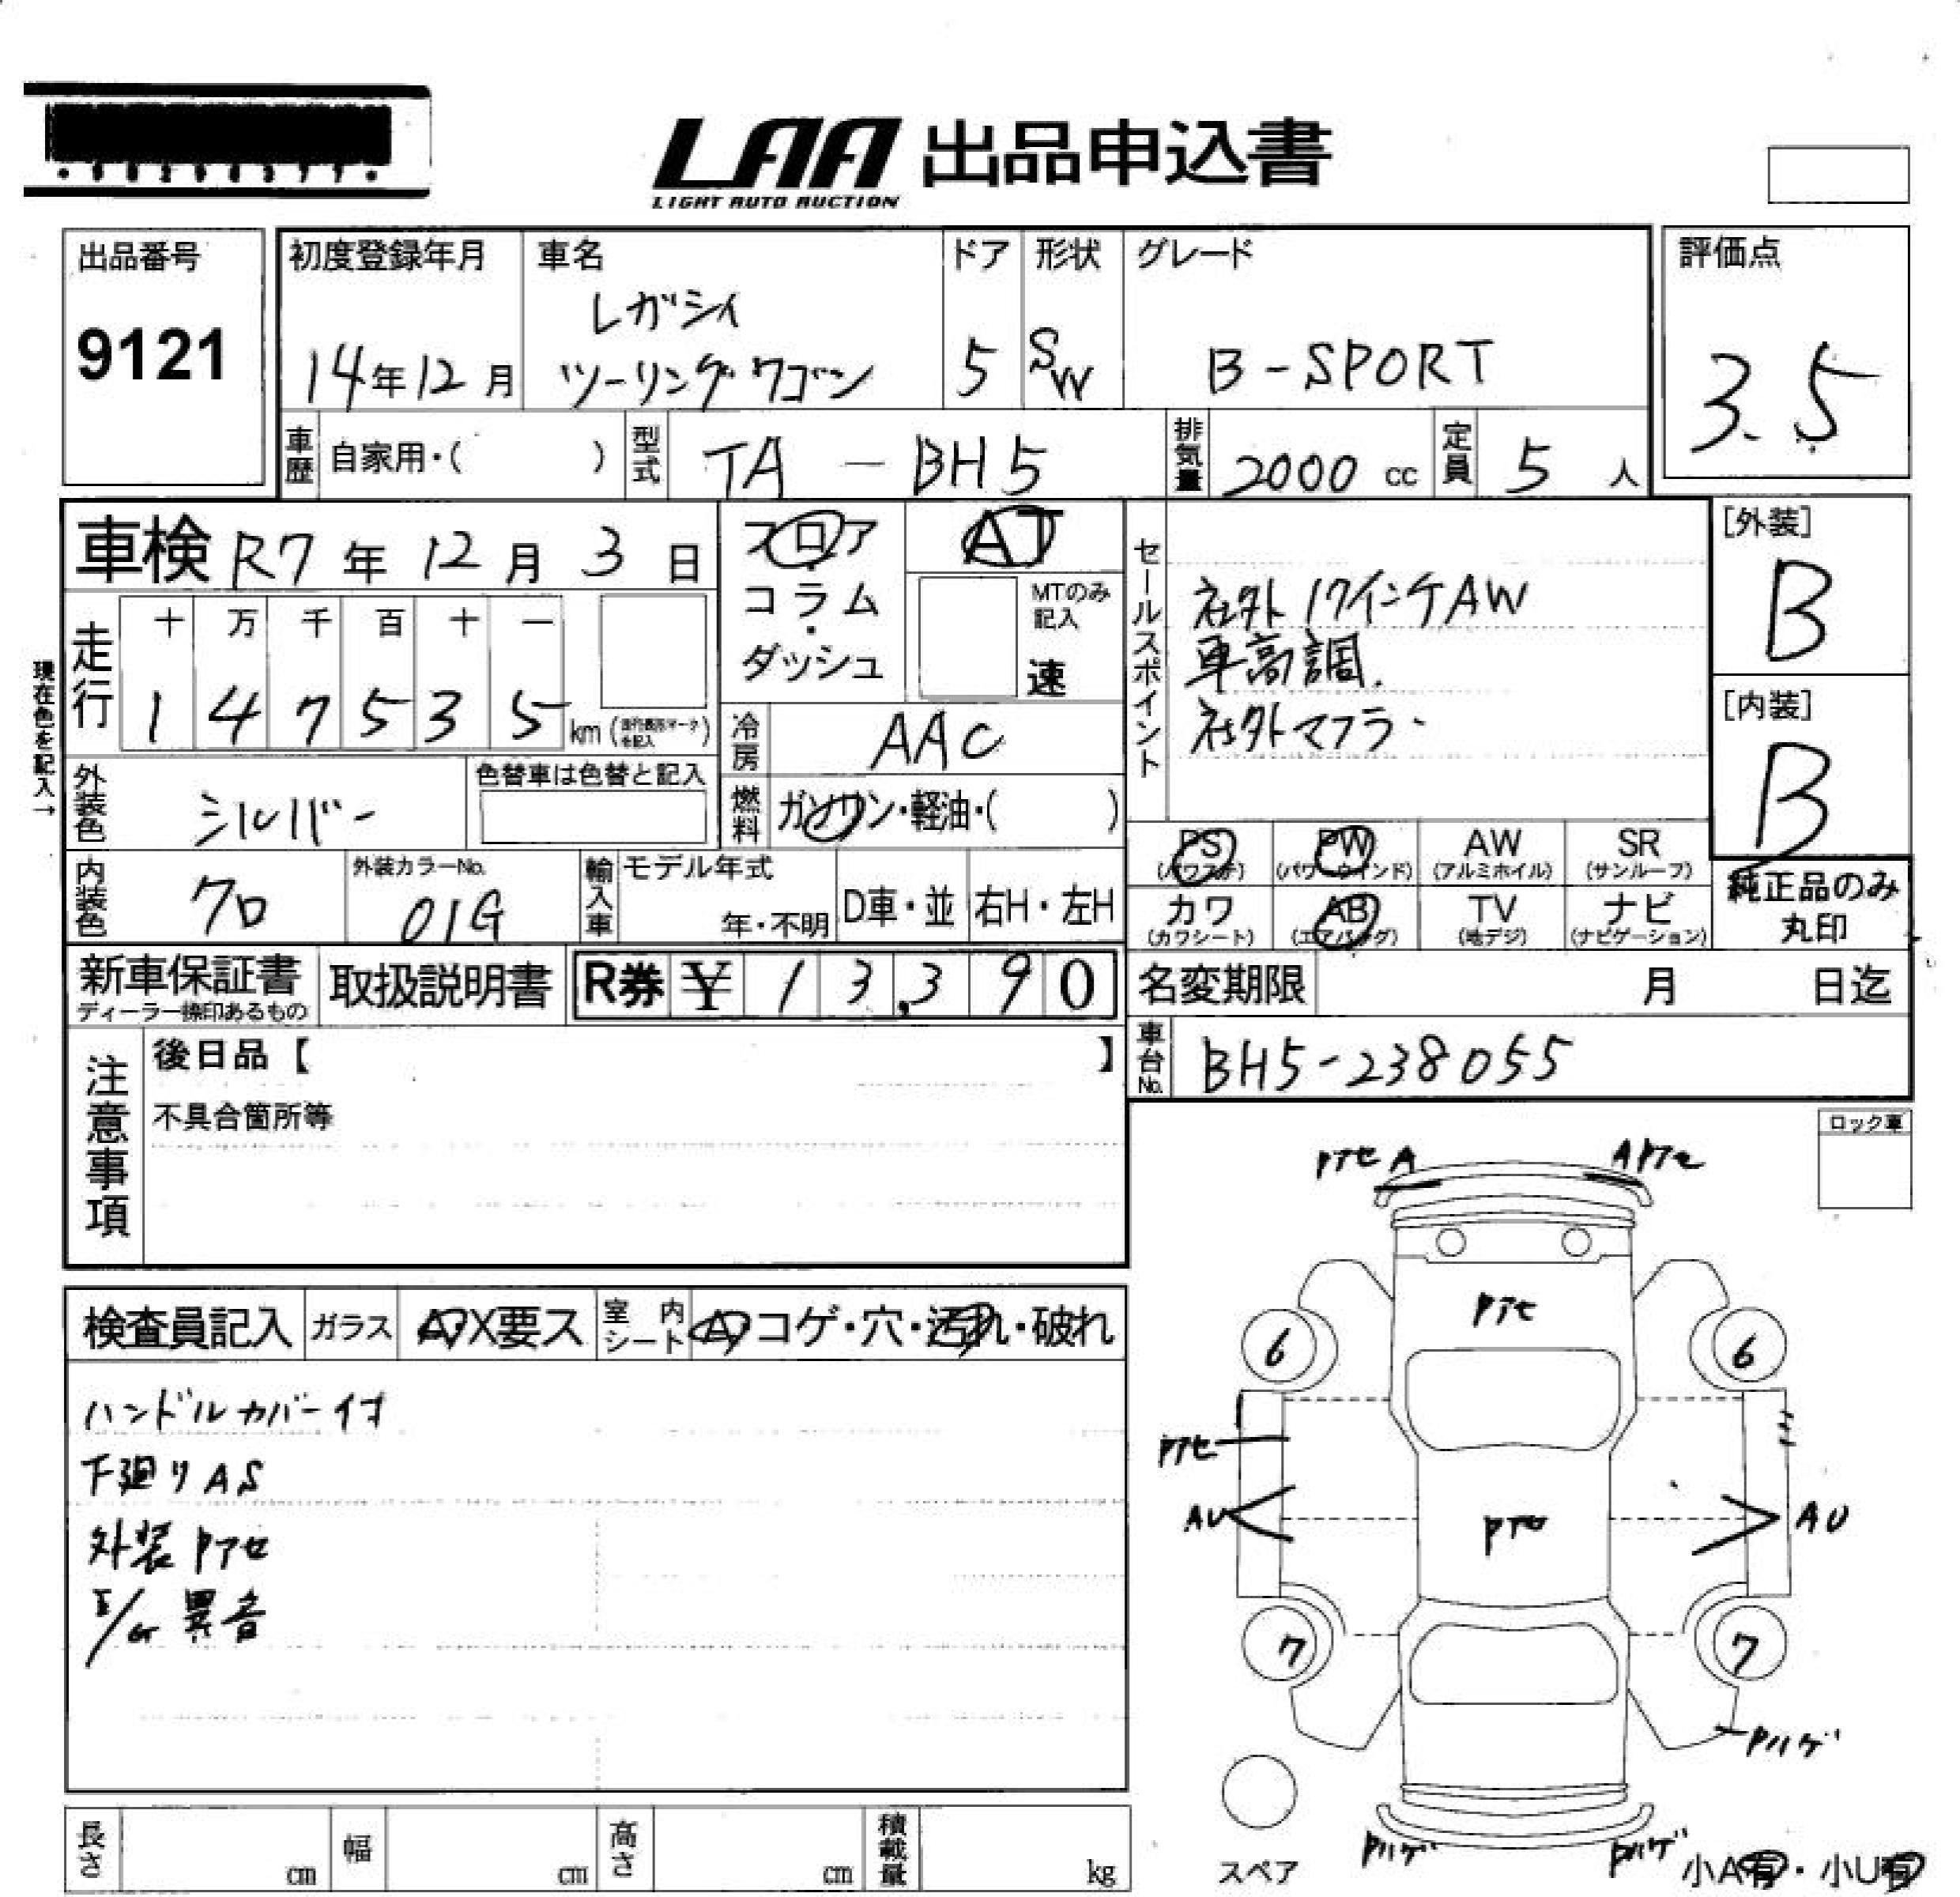 LAA 出品申込書
LIGHT AUTO AUCTION
出品番号
9121
初度登録年月
14年12月
車名
レガシィ
ツーリングワゴン
ドア
5
形状
SW
グレード
B-SPORT
評価点
3.5
車歴 自家用・( )
型式 TA-BH5
排気量 2000 cc
定員 5 人
車検 R7年12月3日
フロア・
コラム・
ダッシュ
AT
MTのみ
記入
速
セールスポイント
社外17インチAW
車高調.
社外マフラー
[外装]
B
[内装]
B
現在色を記入→
走行
十 万 千 百 十 一
1 4 7 5 3 5 km
冷房 AAC
外装色 シルバー
色替車は色替と記入
燃料 ガソリン・軽油・( )
PS
(パワステ)
PW
(パワーウインド)
AW
(アルミホイル)
SR
(サンルーフ)
カワ
(カワシート)
AB
(エアバッグ)
TV
(地デジ)
ナビ
(ナビゲーション)
純正品のみ
丸印
内装色 クロ
外装カラーNo.
01G
輸入車
モデル年式
年・不明
D車・並
右H・左H
新車保証書
取扱説明書
R券 ¥ 13,390
名変期限 月 日迄
車台No. BH5-238055
注意事項
後日品【 】
不具合箇所等
ロック車
検査員記入
ガラス A・X要ス
室内シート A・コゲ・穴・汚れ・破れ
ハンドルカバー付
下廻りAS
外装Pアセ
E/G異音
PアセA
APアセ
Pアセ
6
6
Pアセ
AU
Pアセ
AU
7
7
Pハゲ
Pハゲ
Pハゲ
スペア
小A有・小U有
長さ cm
幅 cm
高さ cm
積載量 kg